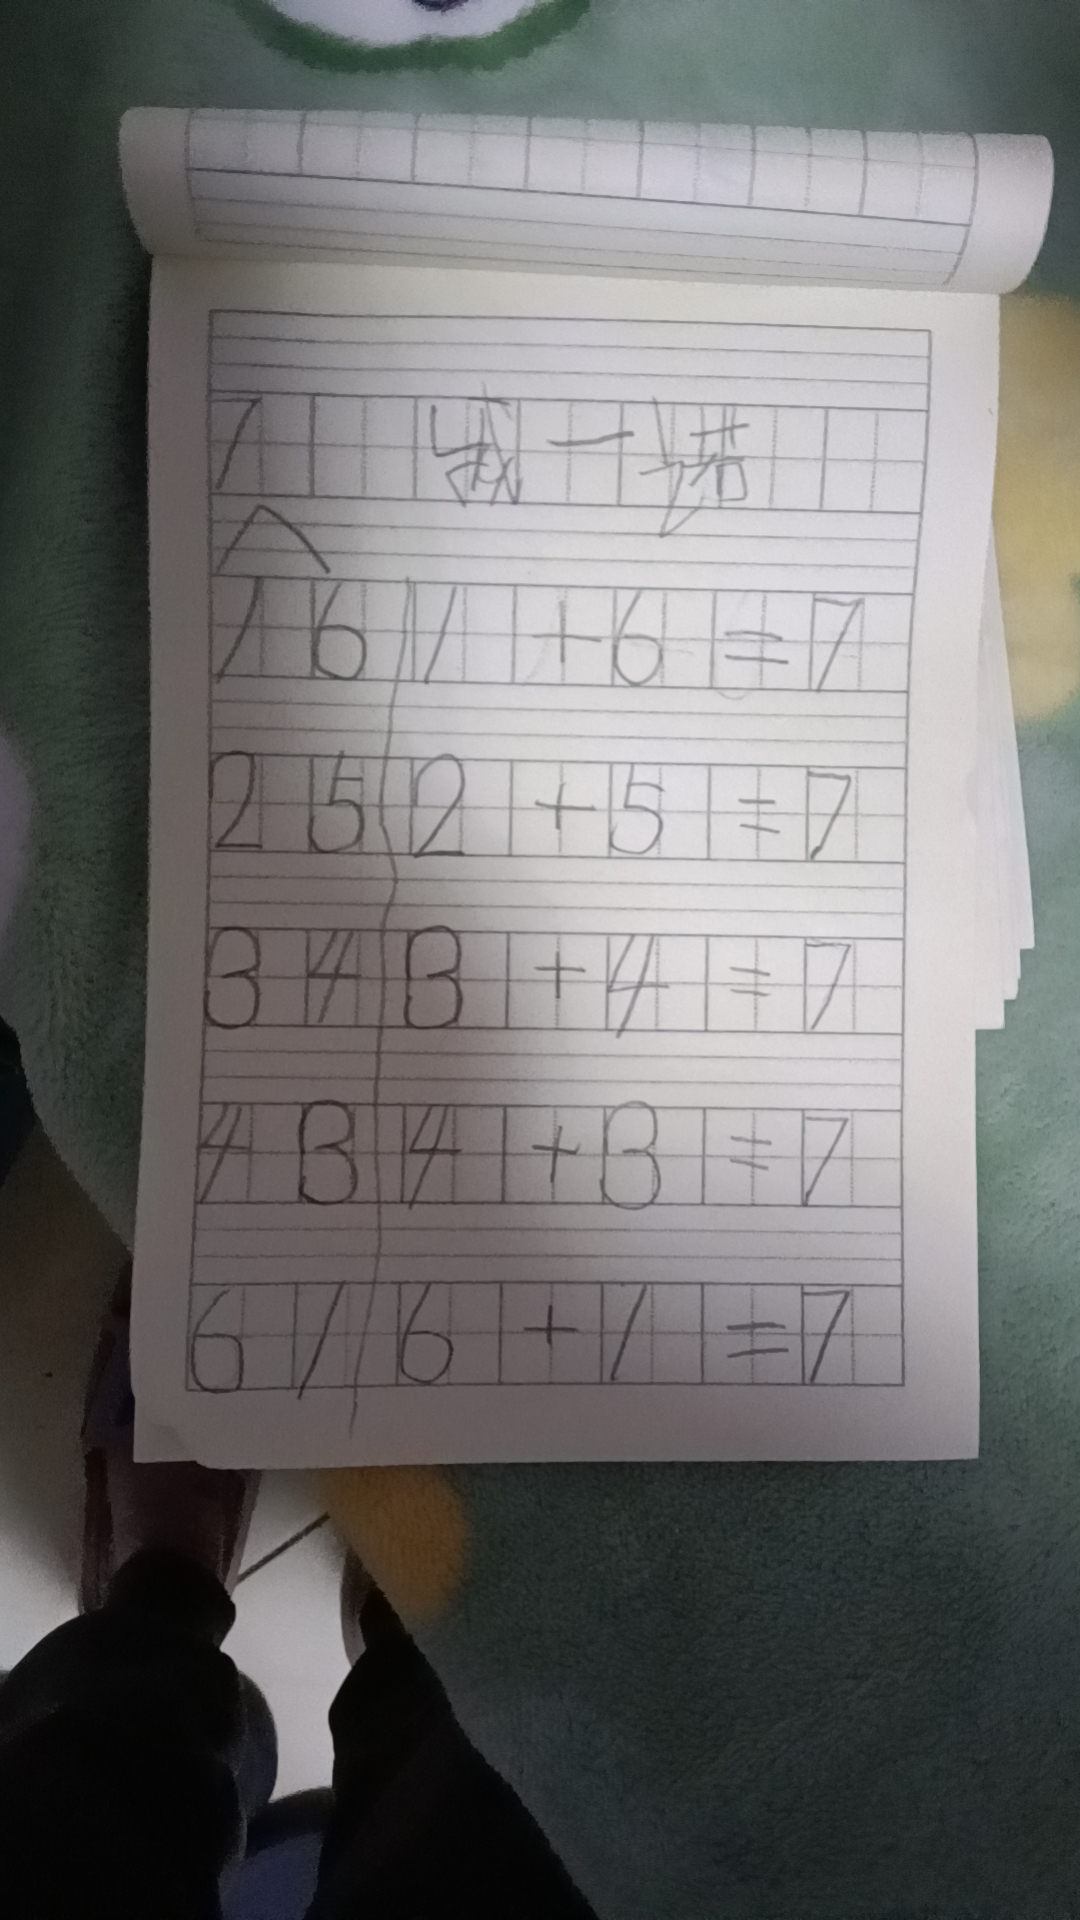 7
1 6 1 + 6 = 7
2 5 2 + 5 = 7
3 4 3 + 4 = 7
4 3 4 + 3 = 7
6 1 6 + 1 = 7